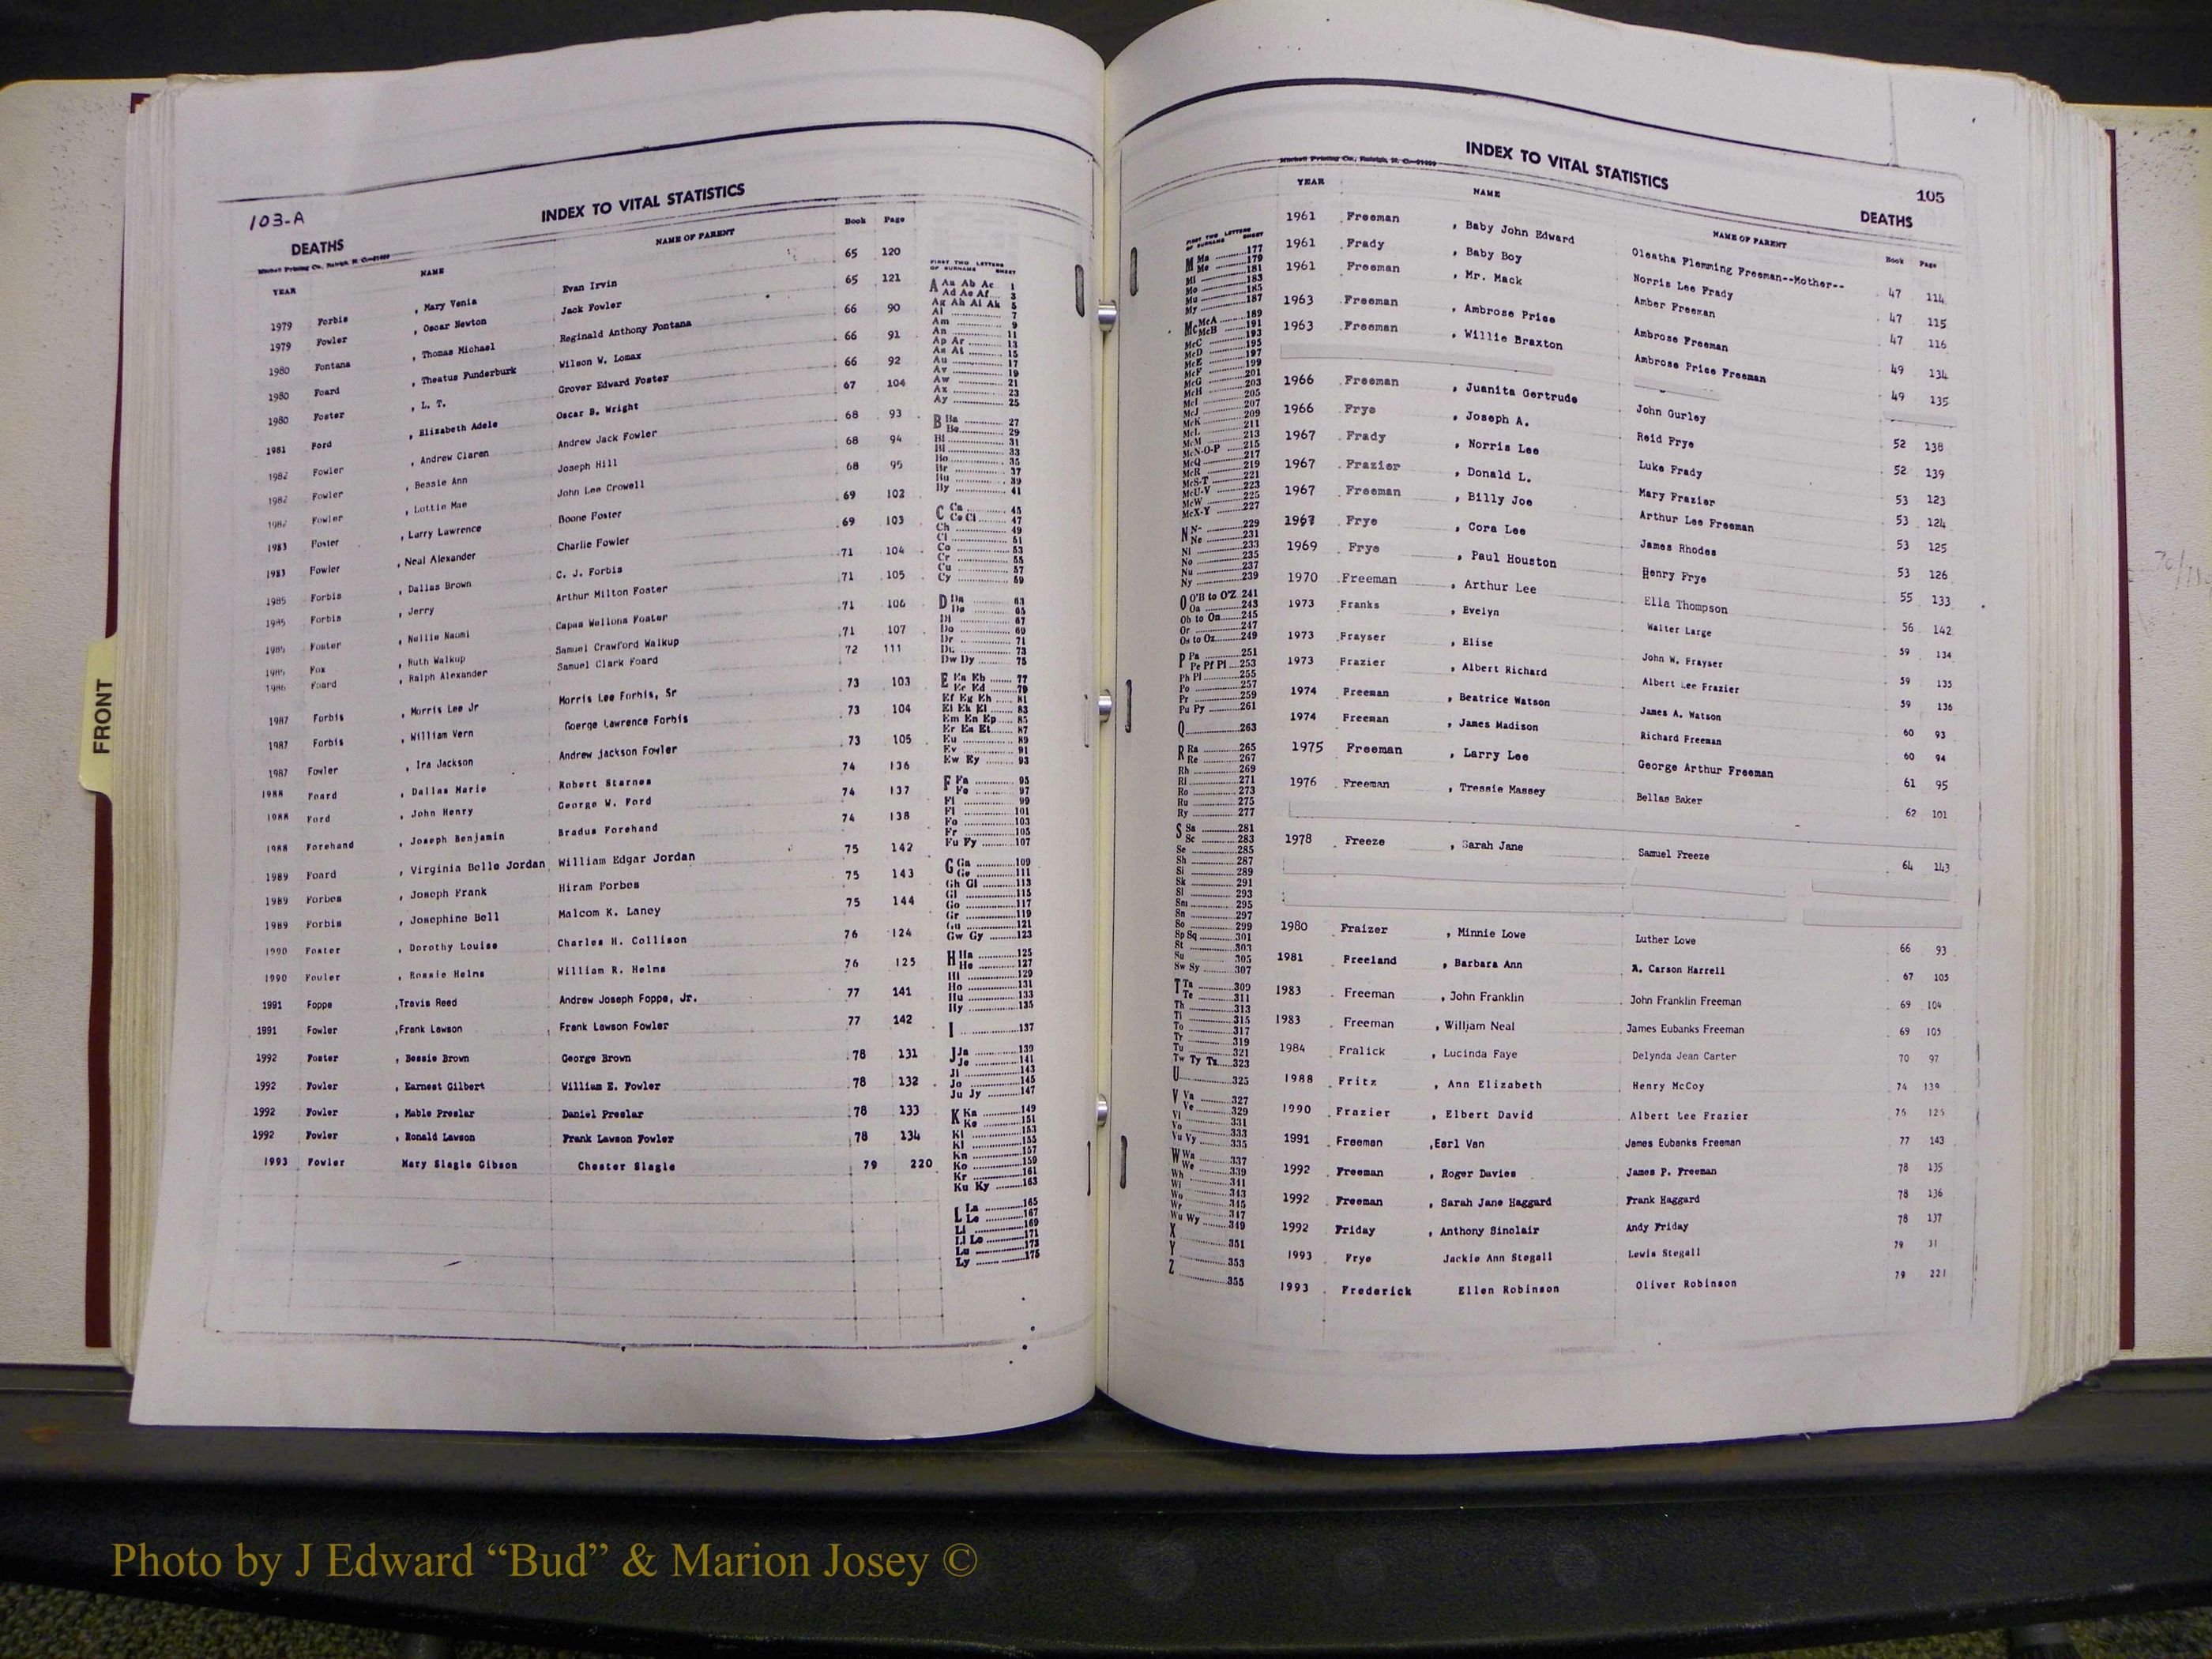 103-A
INDEX TO VITAL STATISTICS
DEATHS
Mitchell Printing Co., Raleigh, N. C.
YEAR NAME NAME OF PARENT Book Page
1979 Forbis , Mary Venia Evan Irvin 65 120
1979 Fowler , Oscar Newton Jack Fowler 65 121
1980 Fontana , Thomas Michael Reginald Anthony Fontana 66 90
1980 Foard , Theatus Funderburk Wilson W. Lomax 66 91
1980 Foster , L. T. Grover Edward Foster 66 92
1981 Ford , Elizabeth Adele Oscar B. Wright 67 104
1982 Fowler , Andrew Claren Andrew Jack Fowler 68 93
1982 Fowler , Bessie Ann Joseph Hill 68 94
1982 Fowler , Lottie Mae John Lee Crowell 68 95
1983 Foster , Larry Lawrence Boone Foster 69 102
1983 Fowler , Neal Alexander Charlie Fowler 69 103
1985 Forbis , Dallas Brown C. J. Forbis 71 104
1985 Forbis , Jerry Arthur Milton Foster 71 105
1985 Foster , Nellie Naomi Capas Wellons Foster 71 106
1985 Fox , Ruth Walkup Samuel Crawford Walkup 71 107
1986 Foard , Ralph Alexander Samuel Clark Foard 72 111
1987 Forbis , Morris Lee Jr Morris Lee Forbis, Sr 73 103
1987 Forbis , William Vern Goerge Lawrence Forbis 73 104
1987 Fowler , Ira Jackson Andrew jackson Fowler 73 105
1988 Foard , Dallas Marie Robert Starnes 74 136
1988 Ford , John Henry George W. Ford 74 137
1988 Forehand , Joseph Benjamin Bradus Forehand 74 138
1989 Foard , Virginia Belle Jordan William Edgar Jordan 75 142
1989 Forbes , Joseph Frank Hiram Forbes 75 143
1989 Forbis , Josephine Bell Malcom K. Laney 75 144
1990 Foster , Dorothy Louise Charles H. Collison 76 124
1990 Fowler , Rossie Helms William R. Helms 76 125
1991 Foppe ,Travis Reed Andrew Joseph Foppe, Jr. 77 141
1991 Fowler ,Frank Lawson Frank Lawson Fowler 77 142
1992 Foster , Bessie Brown George Brown 78 131
1992 Fowler , Earnest Gilbert William E. Fowler 78 132
1992 Fowler , Mable Preslar Daniel Preslar 78 133
1992 Fowler , Ronald Lawson Frank Lawson Fowler 78 134
1993 Fowler Mary Slagle Gibson Chester Slagle 79 220
FIRST TWO LETTERS
OF SURNAME SHEET
A Aa Ab Ac 1
Ad Ae Af 3
Ag Ah Ai Ak 5
Al 7
Am 9
An 11
Ap Ar 13
As At 15
Au 17
Av 19
Aw 21
Ax 23
Ay 25
B Ba 27
Be 29
Bi 31
Bl 33
Bo 35
Br 37
Bu 39
By 41
C Ca 45
Ce Ci 47
Ch 49
Cl 51
Co 53
Cr 55
Cu 57
Cy 59
D Da 63
De 65
Di 67
Do 69
Dr 71
Du 73
Dw Dy 75
E Ea Eb 77
Ec Ed 79
Ef Eg Eh 81
Ei Ek El 83
Em En Ep 85
Er Es Et 87
Eu 89
Ev 91
Ew Ey 93
F Fa 95
Fe 97
Fi 99
Fl 101
Fo 103
Fr 105
Fu Fy 107
G Ga 109
Ge 111
Gh Gi 113
Gl 115
Go 117
Gr 119
Gu 121
Gw Gy 123
H Ha 125
He 127
Hi 129
Ho 131
Hu 133
Hy 135
I 137
J Ja 139
Je 141
Ji 143
Jo 145
Ju Jy 147
K Ka 149
Ke 151
Ki 153
Kl 155
Kn 157
Ko 159
Kr 161
Ku Ky 163
L La 165
Le 167
Li 169
Ll Lo 171
Lu 173
Ly 175
INDEX TO VITAL STATISTICS
105
Mitchell Printing Co., Raleigh, N. C.
DEATHS
YEAR NAME NAME OF PARENT Book Page
FIRST TWO LETTERS
OF SURNAME SHEET
M Ma 177
Me 179
Mi 181
Mo 183
Mu 185
My 187
Mc McA 189
McB 191
McC 193
McD 195
McE 197
McF 199
McG 201
McH 203
McI 205
McJ 207
McK 209
McL 211
McM 213
McN-O-P 215
McQ 217
McR 219
McS-T 221
McU-V 223
McW 225
McX-Y 227
N N- 229
Ne 231
Ni 233
No 235
Nu 237
Ny 239
O O'B to O'Z 241
Oa 243
Ob to On 245
Or 247
Os to Oz 249
P Pa 251
Pe Pf Pl 253
Ph Pi 255
Po 257
Pr 259
Pu Py 261
Q 263
R Ra 265
Re 267
Rh 269
Ri 271
Ro 273
Ru 275
Ry 277
S Sa 281
Sc 283
Se 285
Sh 287
Si 289
Sk 291
Sl 293
Sm 295
Sn 297
So 299
Sp Sq 301
St 303
Su 305
Sw Sy 307
T Ta 309
Te 311
Th 313
Ti 315
To 317
Tr 319
Tu 321
Tw Ty Tz 323
U 325
V Va 327
Ve 329
Vi 331
Vo 333
Vu Vy 335
W Wa 337
We 339
Wh 341
Wi 343
Wo 345
Wr 347
Wu Wy 349
X 351
Y 353
Z 355
1961 Freeman , Baby John Edward Oleatha Flemming Freeman--Mother-- 47 114
1961 Frady , Baby Boy Norris Lee Frady 47 115
1961 Freeman , Mr. Mack Amber Freeman 47 116
1963 Freeman , Ambrose Price Ambrose Freeman 49 134
1963 Freeman , Willie Braxton Ambrose Price Freeman 49 135
1966 Freeman , Juanita Gertrude John Gurley 52 138
1966 Frye , Joseph A. Reid Frye 52 139
1967 Frady , Norris Lee Luke Frady 53 123
1967 Frazier , Donald L. Mary Frazier 53 124
1967 Freeman , Billy Joe Arthur Lee Freeman 53 125
1967 Frye , Cora Lee James Rhodes 53 126
1969 Frye , Paul Houston Henry Frye 55 133
1970 Freeman , Arthur Lee Ella Thompson 56 142
1973 Franks , Evelyn Walter Large 59 134
1973 Frayser , Elise John W. Frayser 59 135
1973 Frazier , Albert Richard Albert Lee Frazier 59 136
1974 Freeman , Beatrice Watson James A. Watson 60 93
1974 Freeman , James Madison Richard Freeman 60 94
1975 Freeman , Larry Lee George Arthur Freeman 61 95
1976 Freeman , Tressie Massey Bellas Baker 62 101
1978 Freeze , Sarah Jane Samuel Freeze 64 143
1980 Fraizer , Minnie Lowe Luther Lowe 66 93
1981 Freeland , Barbara Ann A. Carson Harrell 67 105
1983 Freeman , John Franklin John Franklin Freeman 69 104
1983 Freeman , William Neal James Eubanks Freeman 69 105
1984 Fralick , Lucinda Faye Delynda Jean Carter 70 97
1988 Fritz , Ann Elizabeth Henry McCoy 74 139
1990 Frazier , Elbert David Albert Lee Frazier 76 125
1991 Freeman ,Earl Van James Eubanks Freeman 77 143
1992 Freeman , Roger Davies James P. Freeman 78 135
1992 Freeman , Sarah Jane Haggard Frank Haggard 78 136
1992 Friday , Anthony Sinclair Andy Friday 78 137
1993 Frye Jackie Ann Stegall Lewis Stegall 79 31
1993 Frederick Ellen Robinson Oliver Robinson 79 221
FRONT
Photo by J Edward “Bud” & Marion Josey ©